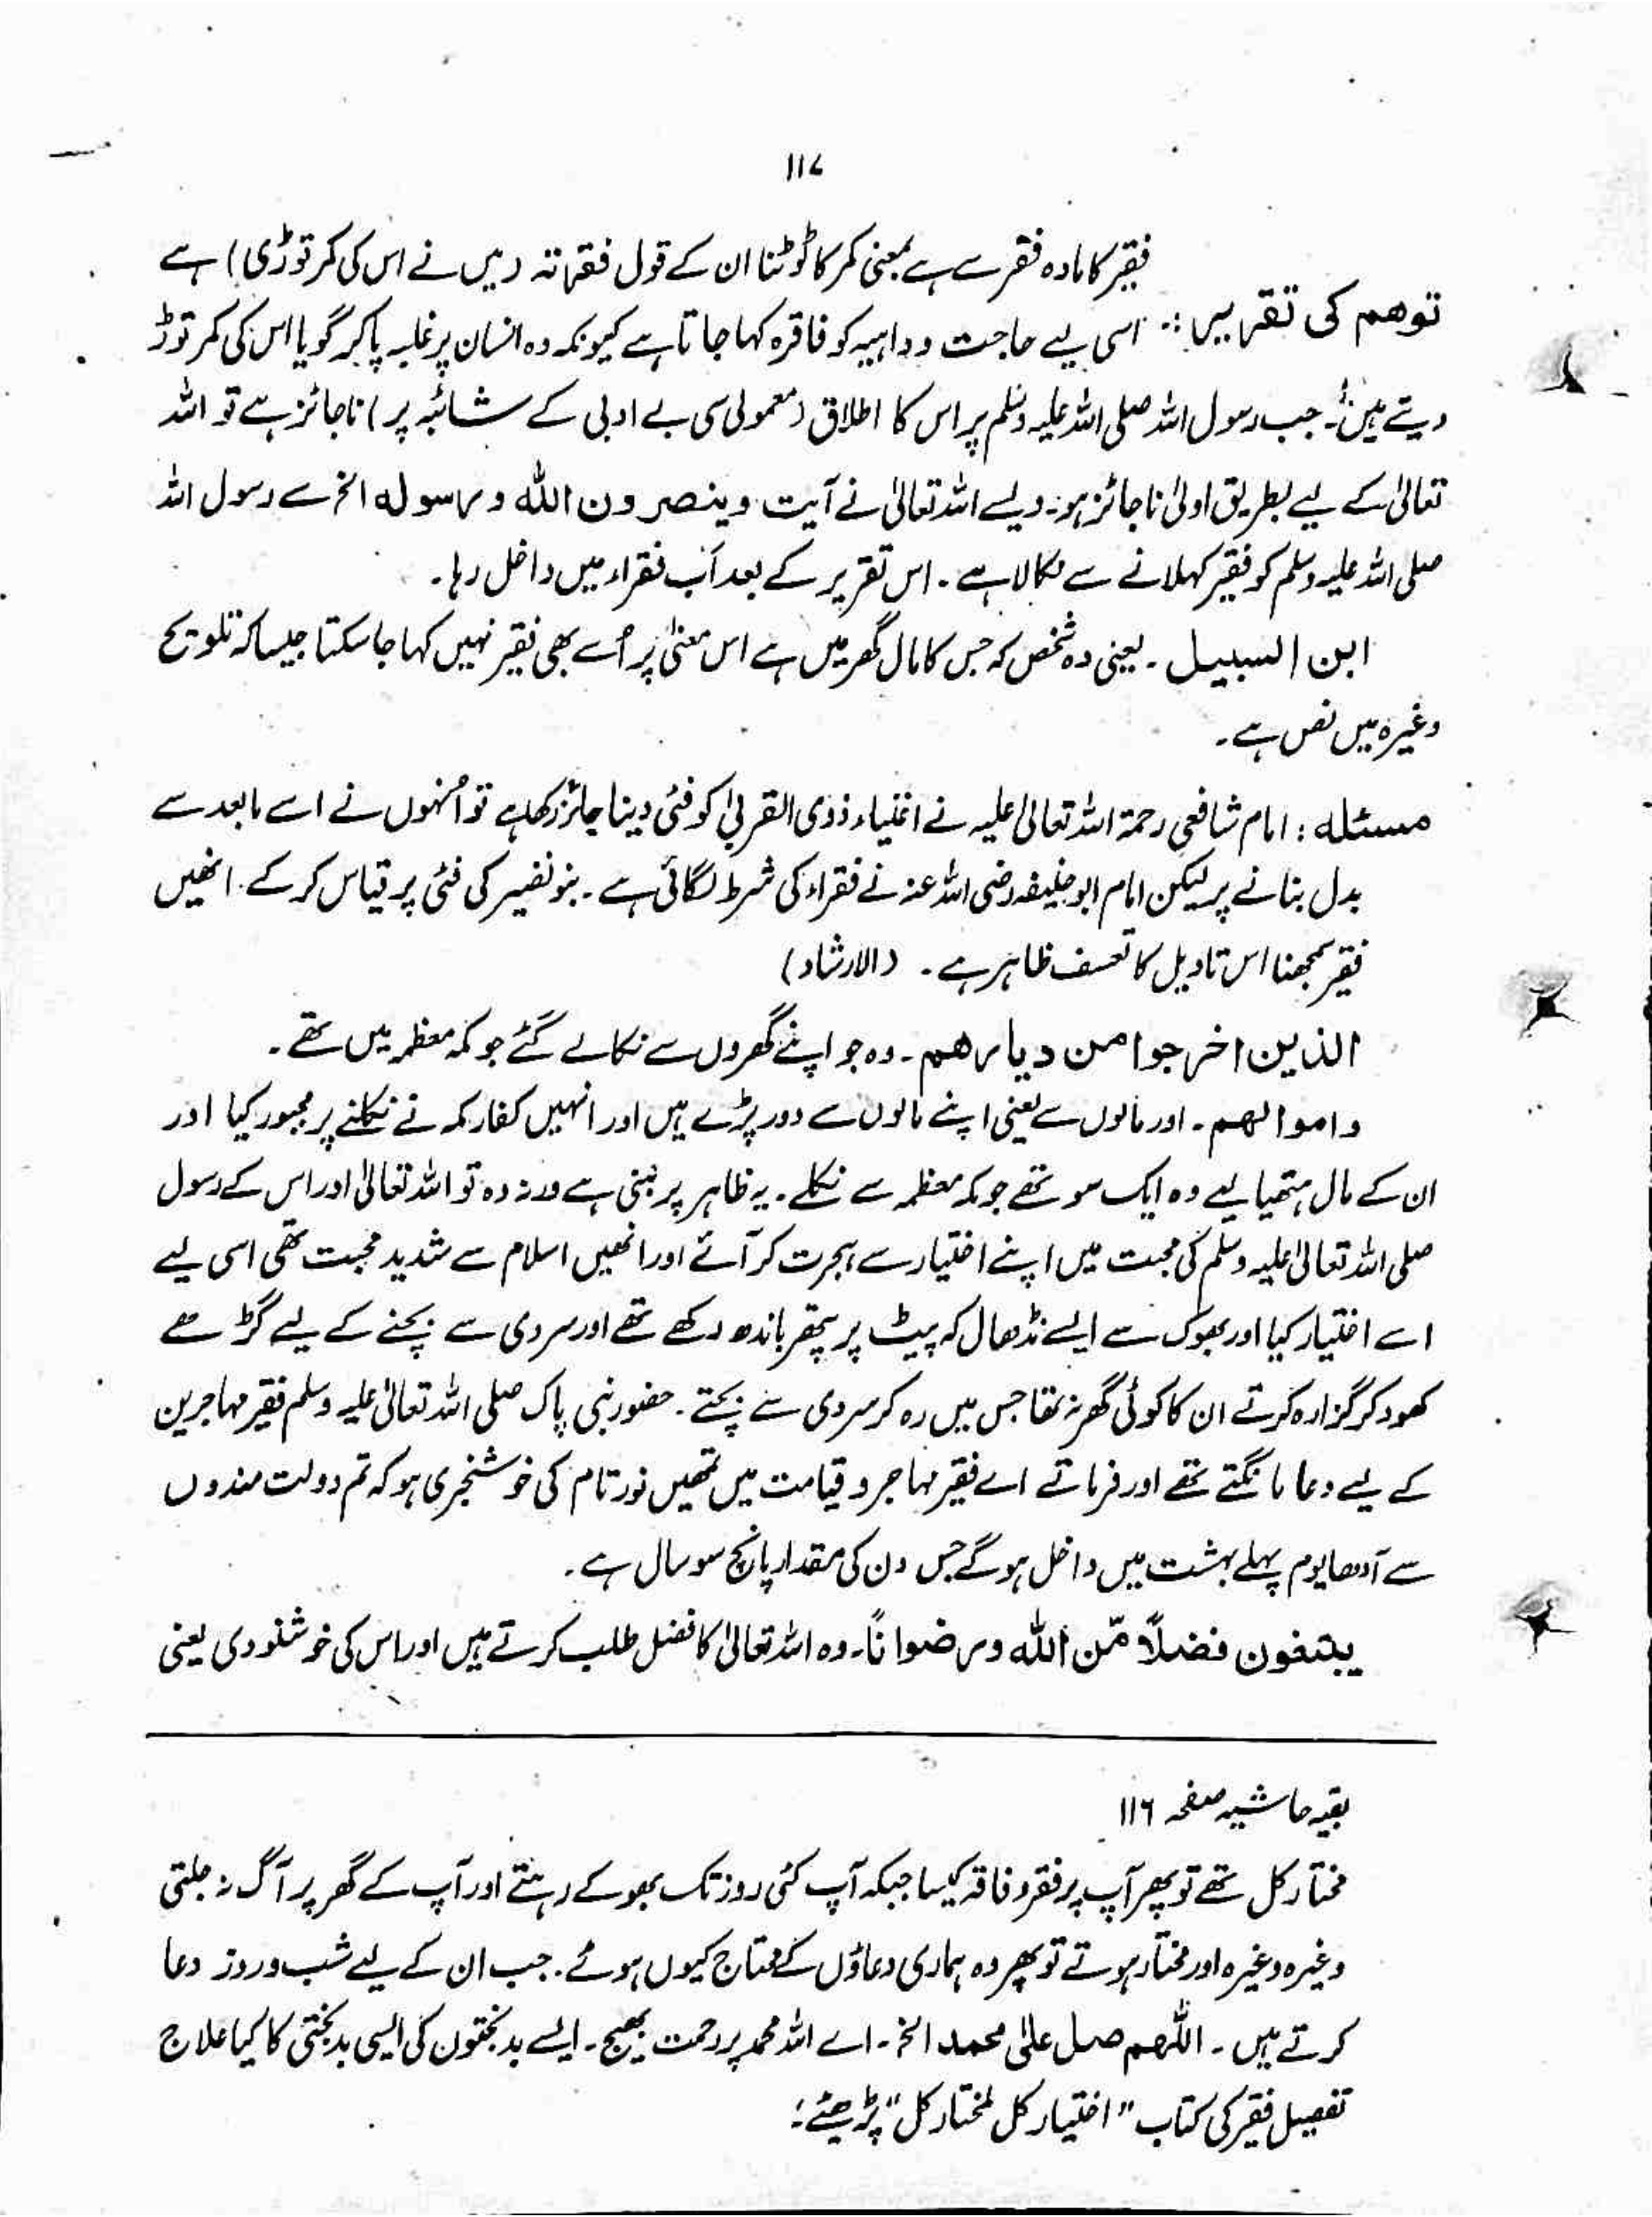 ۱۱۷
فقیر کا مادہ فقر سے ہے بمعنی کمر کا ٹوٹنا ان کے قول فقرتہ (میں نے اس کی کمر توڑی) ہے
توھم کی تقریر :۔ اسی لیے حاجت و داہیہ کو فاقرہ کہا جاتا ہے کیونکہ وہ انسان پر غلبہ پا کر گویا اس کی کمر توڑ
دیتے ہیں۔ جب رسول اللہ صلی اللہ علیہ وسلم پر اس کا اطلاق (معمولی سی بے ادبی کے شائبہ پر) ناجائز ہے تو اللہ
تعالیٰ کے لیے بطریق اولیٰ ناجائز ہو۔ ویسے اللہ تعالیٰ نے آیت وینصرون اللہ ورسولہ الخ سے رسول اللہ
صلی اللہ علیہ وسلم کو فقیر کہلانے سے نکالا ہے۔ اس تقریر کے بعد آپ فقراء میں داخل رہا۔
ابن السبیل۔ یعنی وہ شخص کہ جس کا مال گھر میں ہے اس معنیٰ پر اُسے بھی فقیر نہیں کہا جا سکتا جیسا کہ تلویح
وغیرہ میں نص ہے۔
مسئلہ : امام شافعی رحمۃ اللہ تعالیٰ علیہ نے اغنیاء ذوی القربیٰ کو فئی دینا جائز رکھا ہے تو اُنہوں نے اسے مابعد سے
بدل بنانے پر لیکن امام ابوحنیفہ رضی اللہ عنہ نے فقراء کی شرط لگائی ہے۔ بنو نضیر کی فئی پر قیاس کر کے انھیں
فقیر سمجھنا اس تاویل کا تعسف ظاہر ہے۔ (الارشاد)
الذین اخرجوا من دیارھم۔ وہ جو اپنے گھروں سے نکالے گئے جو مکہ معظمہ میں تھے۔
واموالھم۔ اور مالوں سے یعنی اپنے مالوں سے دور پڑے ہیں اور انہیں کفار مکہ نے نکلنے پر مجبور کیا اور
ان کے مال ہتھیا لیے وہ ایک سو تھے جو مکہ معظمہ سے نکلے۔ یہ ظاہر پر مبنی ہے ورنہ وہ تو اللہ تعالیٰ اور اس کے رسول
صلی اللہ تعالیٰ علیہ وسلم کی محبت میں اپنے اختیار سے ہجرت کر آئے اور انھیں اسلام سے شدید محبت تھی اسی لیے
اسے اختیار کیا اور بھوک سے ایسے نڈھال کہ پیٹ پر پتھر باندھ رکھے تھے اور سردی سے بچنے کے لیے گڑھے
کھود کر گزارہ کرتے ان کا کوئی گھر نہ تھا جس میں رہ کر سردی سے بچتے۔ حضور نبی پاک صلی اللہ تعالیٰ علیہ وسلم فقیر مہاجرین
کے لیے دعا مانگتے تھے اور فرماتے اے فقیر مہاجرو قیامت میں تمھیں نور تام کی خوشخبری ہو کہ تم دولت مندوں
سے آدھا یوم پہلے بہشت میں داخل ہو گے جس دن کی مقدار پانچ سو سال ہے۔
یبتغون فضلًا مّن اللہ ورضوانًا۔ وہ اللہ تعالیٰ کا فضل طلب کرتے ہیں اور اس کی خوشنودی یعنی
بقیہ حاشیہ صفحہ ۱۱۶
مختار کل تھے تو پھر آپ پر فقر و فاقہ کیسا جبکہ آپ کئی روز تک بھوکے رہتے اور آپ کے گھر پر آگ نہ جلتی
وغیرہ وغیرہ اور مختار ہوتے تو پھر وہ ہماری دعاؤں کے محتاج کیوں ہوئے۔ جب ان کے لیے شب و روز دعا
کرتے ہیں۔ اللّٰھم صل علیٰ محمد الخ۔ اے اللہ محمد پر رحمت بھیج۔ ایسے بدبختوں کی ایسی بدبختی کا کیا علاج
تفصیل فقیر کی کتاب "اختیار کل لمختار کل" پڑھیئے؛